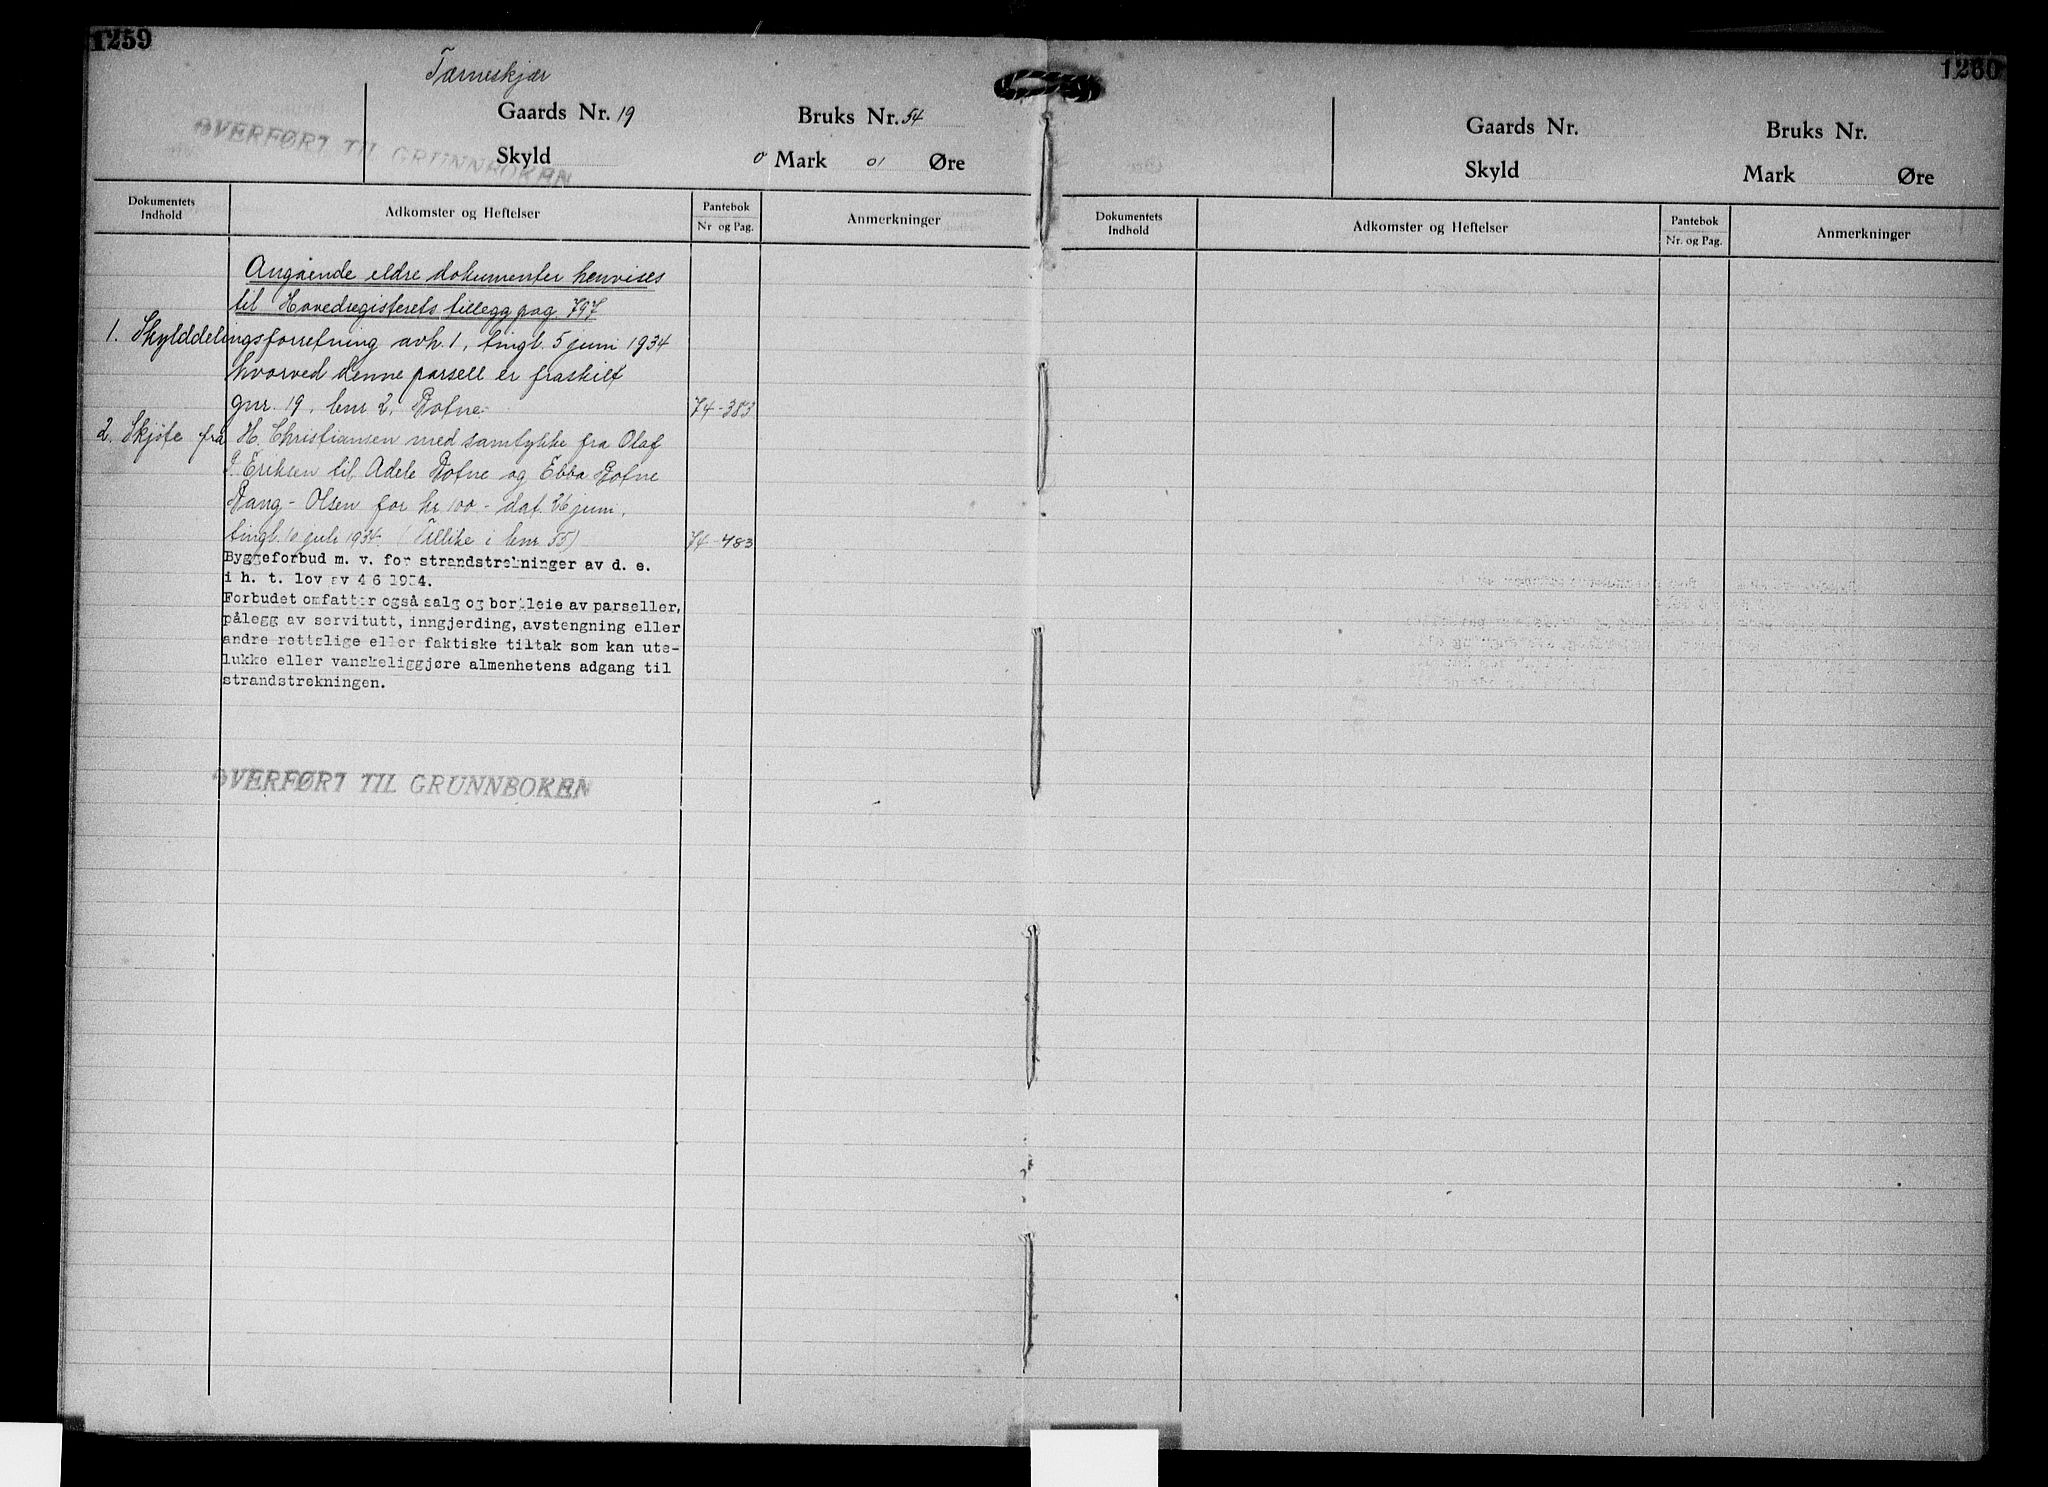 1259
Tærneskjær
Gaards Nr. 19 Bruks Nr. 54
OVERFØRT TIL GRUNNBOKEN
Skyld 0 Mark 01 Øre
Dokumentets Indhold
Adkomster og Heftelser
Pantebok
Nr og Pag.
Anmerkninger
Angående eldre dokumenter henvises
til Hovedregisterets tillegg pag. 797
1. Skylddelingsforretning avh. 1, tingl. 5 juni 1934
hvorved denne parsell er fraskilt
gnr. 19, bnr 2, 74-383
2. Skjøte fra H. Christiansen med samtykke fra Olaf
J. Eriksen til Adele og Ebba
Olsen for kr 100.- dat. 26 juni,
tingl. 10 juli 1934. (Tillike i bnr 55) 74-483
Byggeforbud m. v. for strandstrekninger av d. e.
i h. t. lov av 4 6 1954.
Forbudet omfatter også salg og bortleie av parseller,
pålegg av servitutt, inngjerding, avstengning eller
andre rettslige eller faktiske tiltak som kan ute-
lukke eller vanskeliggjøre almenhetens adgang til
strandstrekningen.
OVERFØRT TIL GRUNNBOKEN
1260
Gaards Nr. Bruks Nr.
Skyld Mark Øre
Dokumentets Indhold
Adkomster og Heftelser
Pantebok
Nr. og Pag.
Anmerkninger